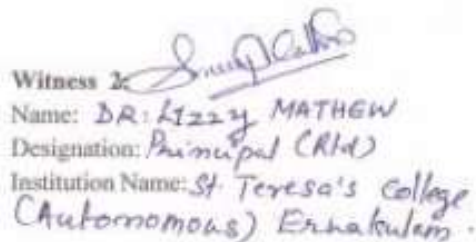 Witness 2:
Name: DR. LIZZY MATHEW
Designation: Principal (Rtd)
Institution Name: St Teresa's College
(Autonomous) Ernakulam.